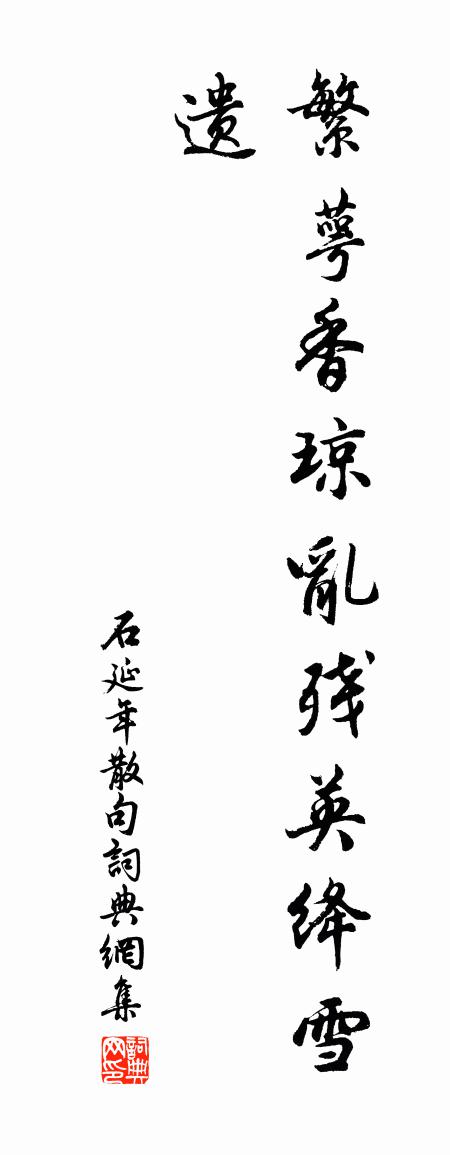 繁萼香琼亂残英绛雪
遗
石延年散句詞典網集
詞典
网印